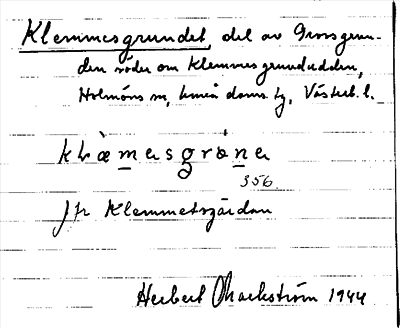 Klemmesgrundet, del av Grossgrun-
den söder om Klemmesgrundudden,
Holmöns sn, Umeå doms. tg, Västerb. l.
klæmesgrone
356
Jfr Klemmetsgårdan
Herbert Markström 1944